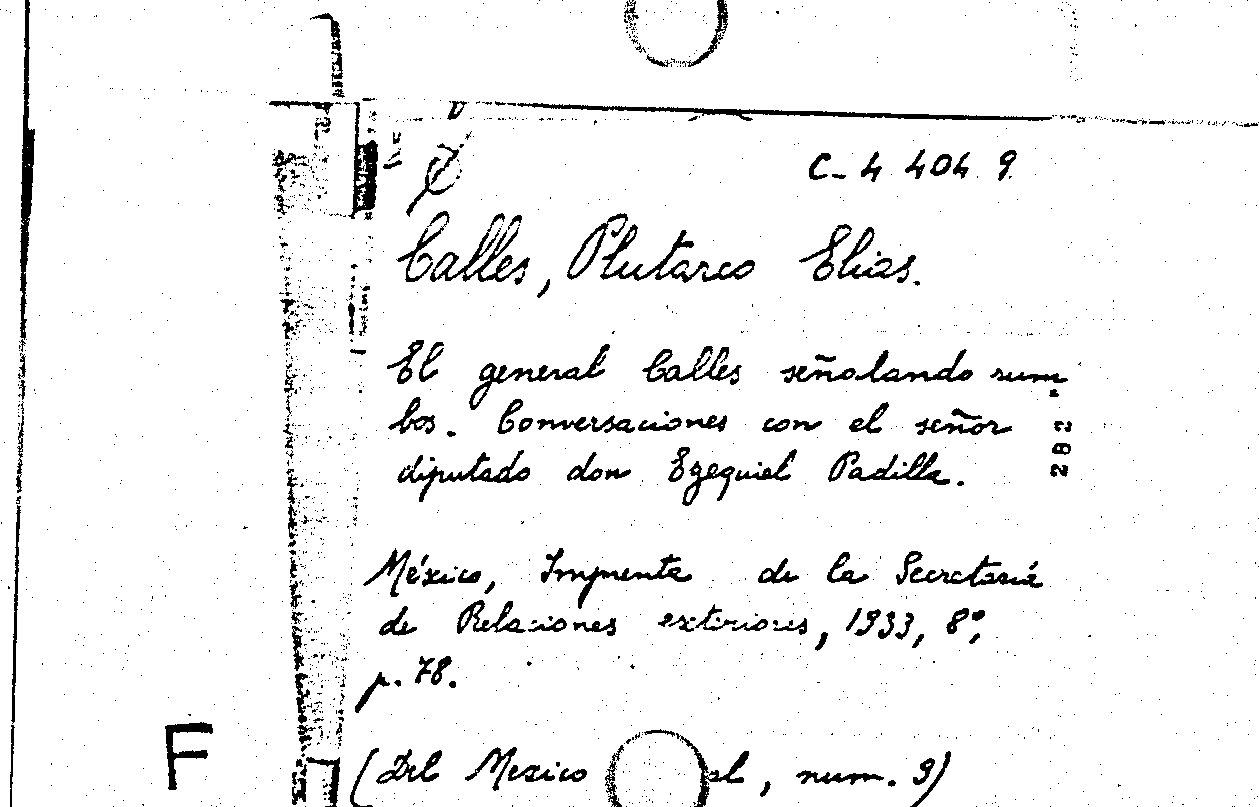 C-4 404 9
Calles, Plutarco Elias.
El general Calles señalando rum
bos. Conversaciones con el señor
diputado don Ezequiel Padilla.
282
México, Imprenta de la Secretaría
de Relaciones exteriores, 1933, 8°,
p. 78.
F
(Del Mexico al, num. 9)